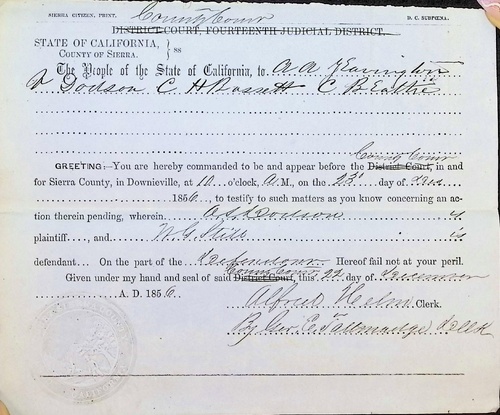 SIERRA CITIZEN, PRINT. County Court D. C. SUBPŒNA.
DISTRICT COURT, FOURTEENTH JUDICIAL DISTRICT.
STATE OF CALIFORNIA,
COUNTY OF SIERRA. } ss
The People of the State of California, to A. A.
Dodson C H C B
GREETING:—You are hereby commanded to be and appear before the County Court District Court, in and
for Sierra County, in Downieville, at 10 o'clock, A M., on the 23d day of Dec
1856, to testify to such matters as you know concerning an ac-
tion therein pending, wherein Dodson is
plaintiff, and W. G. Still is
defendant On the part of the Defendant Hereof fail not at your peril.
Given under my hand and seal of said County Court District Court, this 22 day of December
A. D. 1856.
Alfred Helm Clerk.
By Geo. E Tallmadge